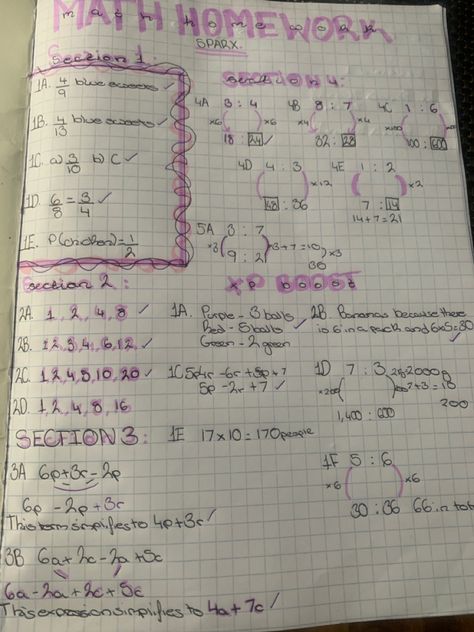 MATH HOMEWORK
SPARX.
Section 1:
1A. 4/9 blue sweets ✓
1B. 4/13 blue sweets ✓
1C. a) 3/10 b) C ✓
1D. 6/8 = 3/4 ✓
1E. P(chicken) = 1/2
Section 4:
4A 3 : 4
×6 ×6
18 : 24 ✓
4B 8 : 7
×4 ×4
32 : 28
4C 1 : 6
×100
100 : 600
4D 4 : 3
×12
48 : 36
4E 1 : 2
×2
7 : 14
14+7=21
5A 3 : 7
×3 3+7=10 ×3
9 : 21 30
Section 2:
2A. 1, 2, 4, 8 ✓
2B. 1,2,3,4,6,12 ✓
2C. 1,2,4,5,10,20 ✓
2D. 1,2,4,8,16
XP BOOST
1A. Purple - 3 balls
Red - 5 balls ✓
Green - 2 green
2B Bananas because there
is 6 in a pack and 6x5=30
1C 5p4r -6r +3p+7
5p -2r +7 ✓
1D 7 : 3
×200 7+3=10
1,400 : 600 200
1E 17 x 10 = 170 people
1F 5 : 6
×6 ×6
30 : 36 66 in
SECTION 3:
3A 6p+3r-2p
6p -2p +3r
This term simplifies to 4p+3r ✓
3B 6a+2c-2a+5c
6a-2a+2c+5c
This expression simplifies to 4a+7c ✓